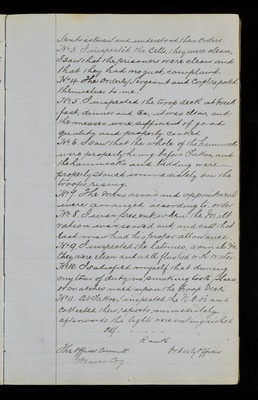 Sentries turned and understood their Orders.
No 3. I inspected the Cells, they were clean,
I saw that the prisoners were clean and
that they had no just complaint.
No 4. The Orderly Sergeant and Corpl reported
themselves to me.
No 5. I inspected the troop deck at break
fast, dinner and tea, it was clean and
the messes were sufficient of good
quality and properly cooked.
No 6. I saw that the whole of the hammocks
were properly hung before Tattoo, and
the hammocks and bedding were
properly stowed immediately on the
troops rising.
No 7. The men's arms and appointments
were arranged according to order.
No 8. I was present when the Malt
ration was served out and saw that
each man had the proper allowance.
No 9. I inspected the latrines, urinals &c
they were clean and well flushed with water.
No 10. I satisfied myself that during
my tour of duty no smoking took place
or matches used upon the troop Deck
No 11. At Tattoo, I inspected the N.C.O's and
collected their reports, immediately
afterwards the lights were extinguished
Sd/
Rank
The Officer Commdt Orderly Officer
Coy.